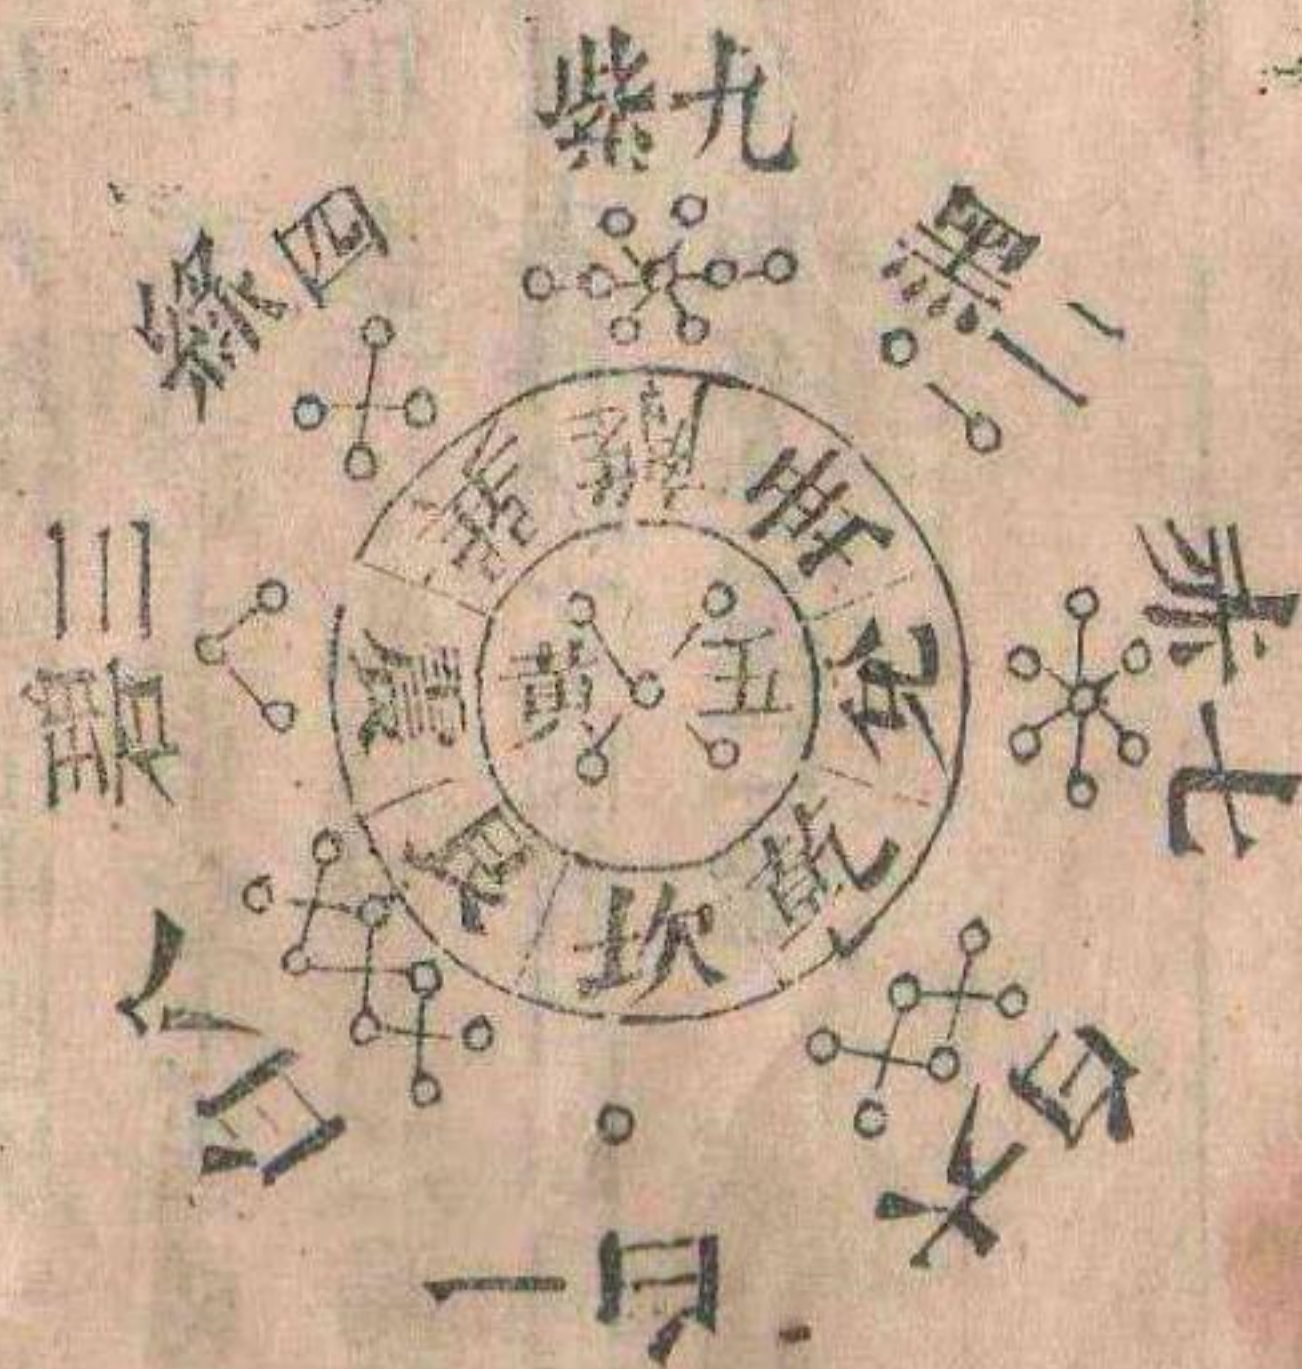 九紫
二黑
七赤
六白
一白
八白
三碧
四綠
離
坤
兌
乾
坎
艮
震
巽
五黃